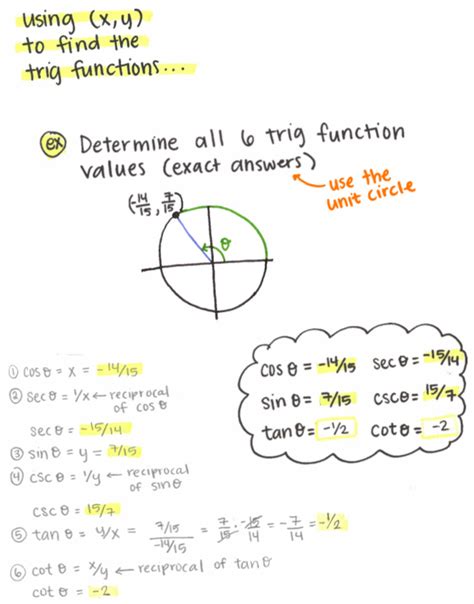 using (x,y)
to find the
trig functions...
ex Determine all 6 trig function
values (exact answers)
use the
unit circle
(-14/15, 7/15)
θ
① cosθ = x = -14/15
② secθ = 1/x ← reciprocal
of cosθ
secθ = -15/14
③ sinθ = y = 7/15
④ cscθ = 1/y ← reciprocal
of sinθ
cscθ = 15/7
⑤ tanθ = y/x = 7/15 / -14/15 = 7/15 · -15/14 = -7/14 = -1/2
⑥ cotθ = x/y ← reciprocal of tanθ
cotθ = -2
cosθ = -14/15 secθ = -15/14
sinθ = 7/15 cscθ = 15/7
tanθ = -1/2 cotθ = -2